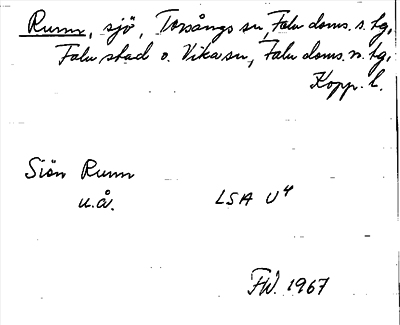 Runn, sjö, Torsångs sn, Falu doms. s. tg,
Falu stad o. Vika sn, Falu doms. n. tg,
Kopp. l.
Siön Runn
u.å.
LSA U4
FW. 1967